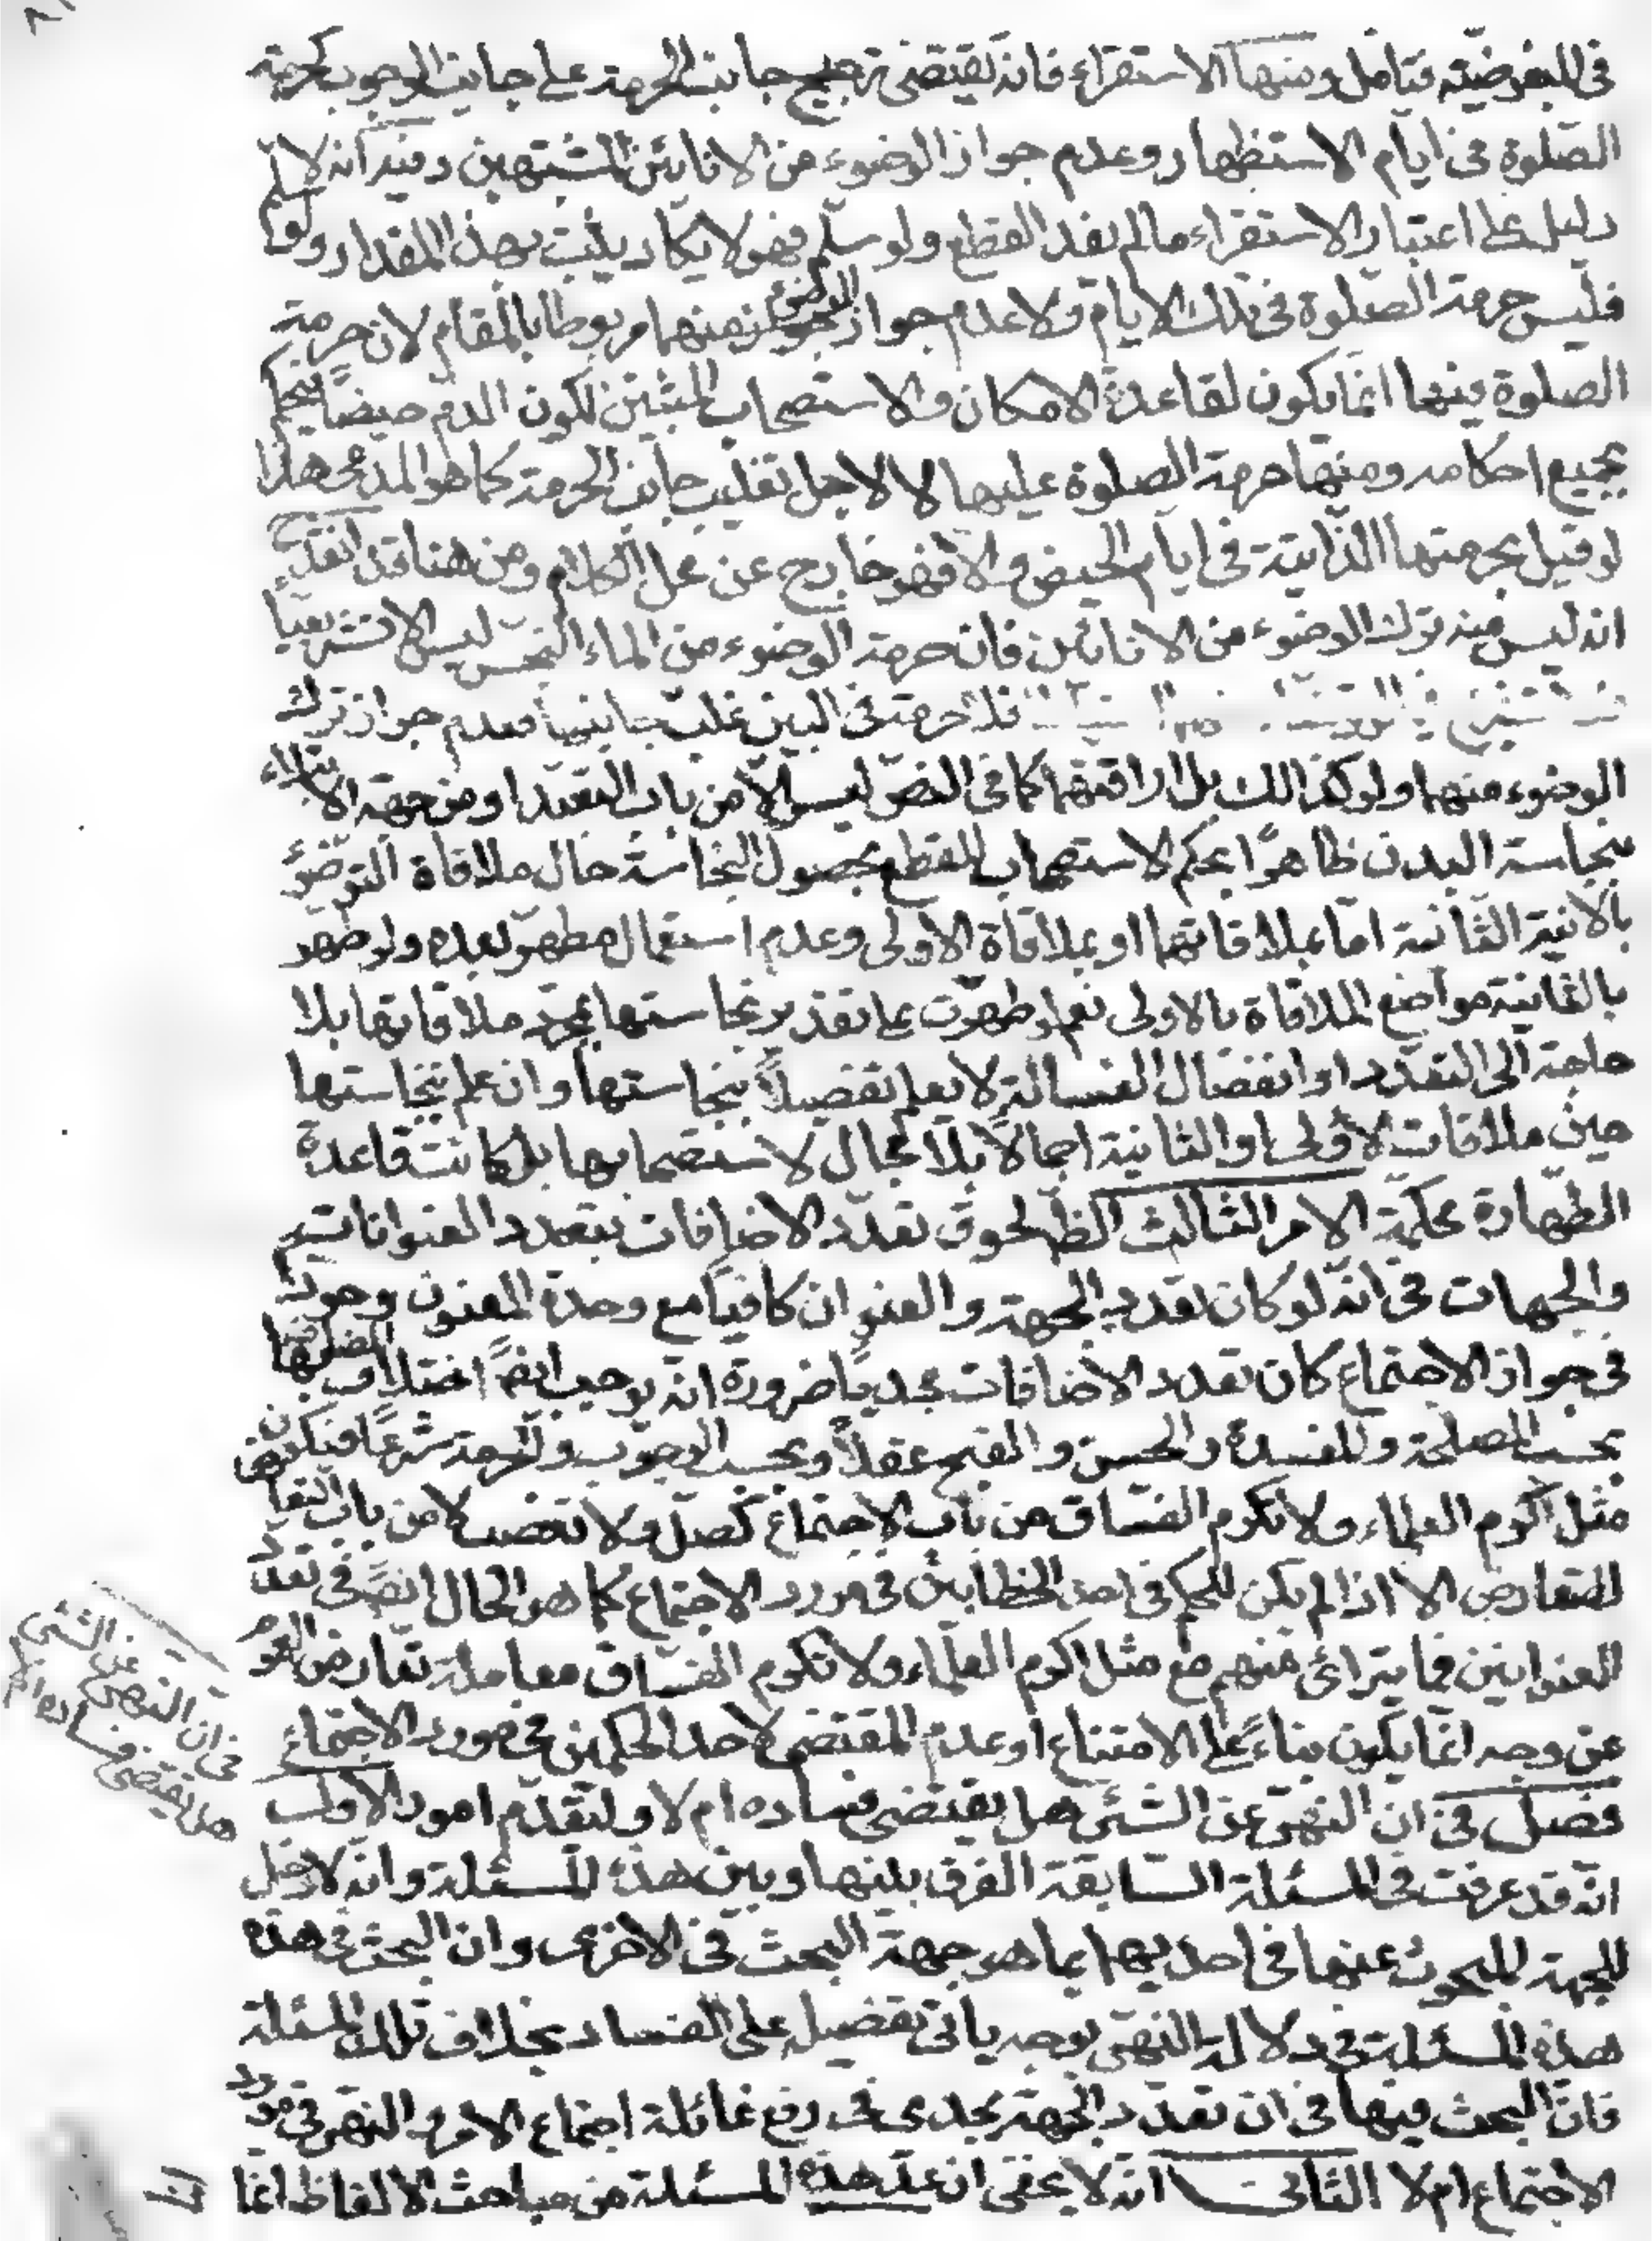 في المفروضة فتأمل ومنها الاستقراء فانه يقتضى ترجيح جانب الحرمة على جانب الوجوب كحرمة
الصلوة فى ايام الاستظهار وعدم جواز الوضوء من الانائين المشتبهين وفيه انه لا
دليل على اعتبار الاستقراء ما لم يفد القطع ولو سلم فهو لا يكاد يثبت بهذا المقدار ولو سلم
فليس حرمة الصلوة فى تلك الايام ولا عدم جواز الوضوء منهما مربوطا بالمقام لان حرمة
الصلوة فيها انما يكون لقاعدة الامكان والاستصحاب المثبتين لكون الدم حيضا فيحكم
بجميع احكامه ومنها حرمة الصلوة عليها لا لاجل تغليب جانب الحرمة كما هو المدعى هذا
لو قيل بحرمتها الذاتية فى ايام الحيض والا فهو خارج عن محل الكلام ومن هنا قد انقدح
انه ليس منه ترك الوضوء من الانائين فان حرمة الوضوء من الماء النجس ليس الا تشريعيا
فلا حرمة فى البين غلب جانبها فعدم جواز ترك
الوضوء منهما ولو كذلك بل اراقتهما كما فى النص ليس الا من باب التعبد او من جهة الابتلاء
بنجاسة البدن ظاهرا بحكم الاستصحاب للقطع بحصول النجاسة حال ملاقاة المتوضئ
بالانية الثانية اما بملاقاتها او بملاقاة الاولى وعدم استعمال مطهر بعده ولو طهر
بالثانية مواضع الملاقاة بالاولى نعم لو طهرت على تقدير نجاستها بمجرد ملاقاتها بلا
حاجة الى التعدد او انفصال الغسالة لا يعلم تفصيلا بنجاستها وان علم بنجاستها
حين ملاقات الاولى او الثانية اجمالا بلا مجال لاستصحابها بل كانت قاعدة
الطهارة محكمة الامر الثالث الظ لحوق تعدد الاضافات بتعدد العنوانات
والجهات فى انه لو كان تعدد الجهة والعنوان كافيا مع وحدة المعنون وجودا
فى جواز الاجتماع كان تعدد الاضافات مجديا ضرورة انه يوجب ايضا اختلاف المضاف بها
بحسب المصلحة والمفسدة والحسن والقبح عقلا وبحسب الوجوب والحرمة شرعا فيكون
مثل اكرم العلماء ولا تكرم الفساق من باب الاجتماع كصل ولا تغصب لا من باب
التعارض الا اذا لم يكن للحكم فى احد الخطابين فى مورد الاجتماع كما هو الحال ايضا فى تعدد
العنوانين فما يترائى منهم مع مثل اكرم العلماء ولا تكرم الفساق معاملة تعارض العموم
من وجه انما يكون بناء على الامتناع او عدم المقتضى لاحد الحكمين فى مورد الاجتماع
فصل فى ان النهى عن الشئ هل يقتضى فساده ام لا ولنقدم امور الاول
انه قد عرفت فى المسئلة السابقة الفرق بينها وبين هذه المسئلة وانه لا دخل
للجهة المبحوث عنها فى احديهما بما هو جهة البحث فى الاخرى وان البحث فى هذه
هذه المسئلة فى دلالة النهى بوجه ياتى تفصيله على الفساد بخلاف تلك المسئلة
فان البحث فيها فى ان تعدد الجهة يجدى فى رفع غائلة اجتماع الامر والنهى فى مورد
الاجتماع ام لا الثانى انه لا يخفى ان عد هذه المسئلة من مباحث الالفاظ انما
فى ان النهى عن الشئ
هل يقتضى فساده ام لا